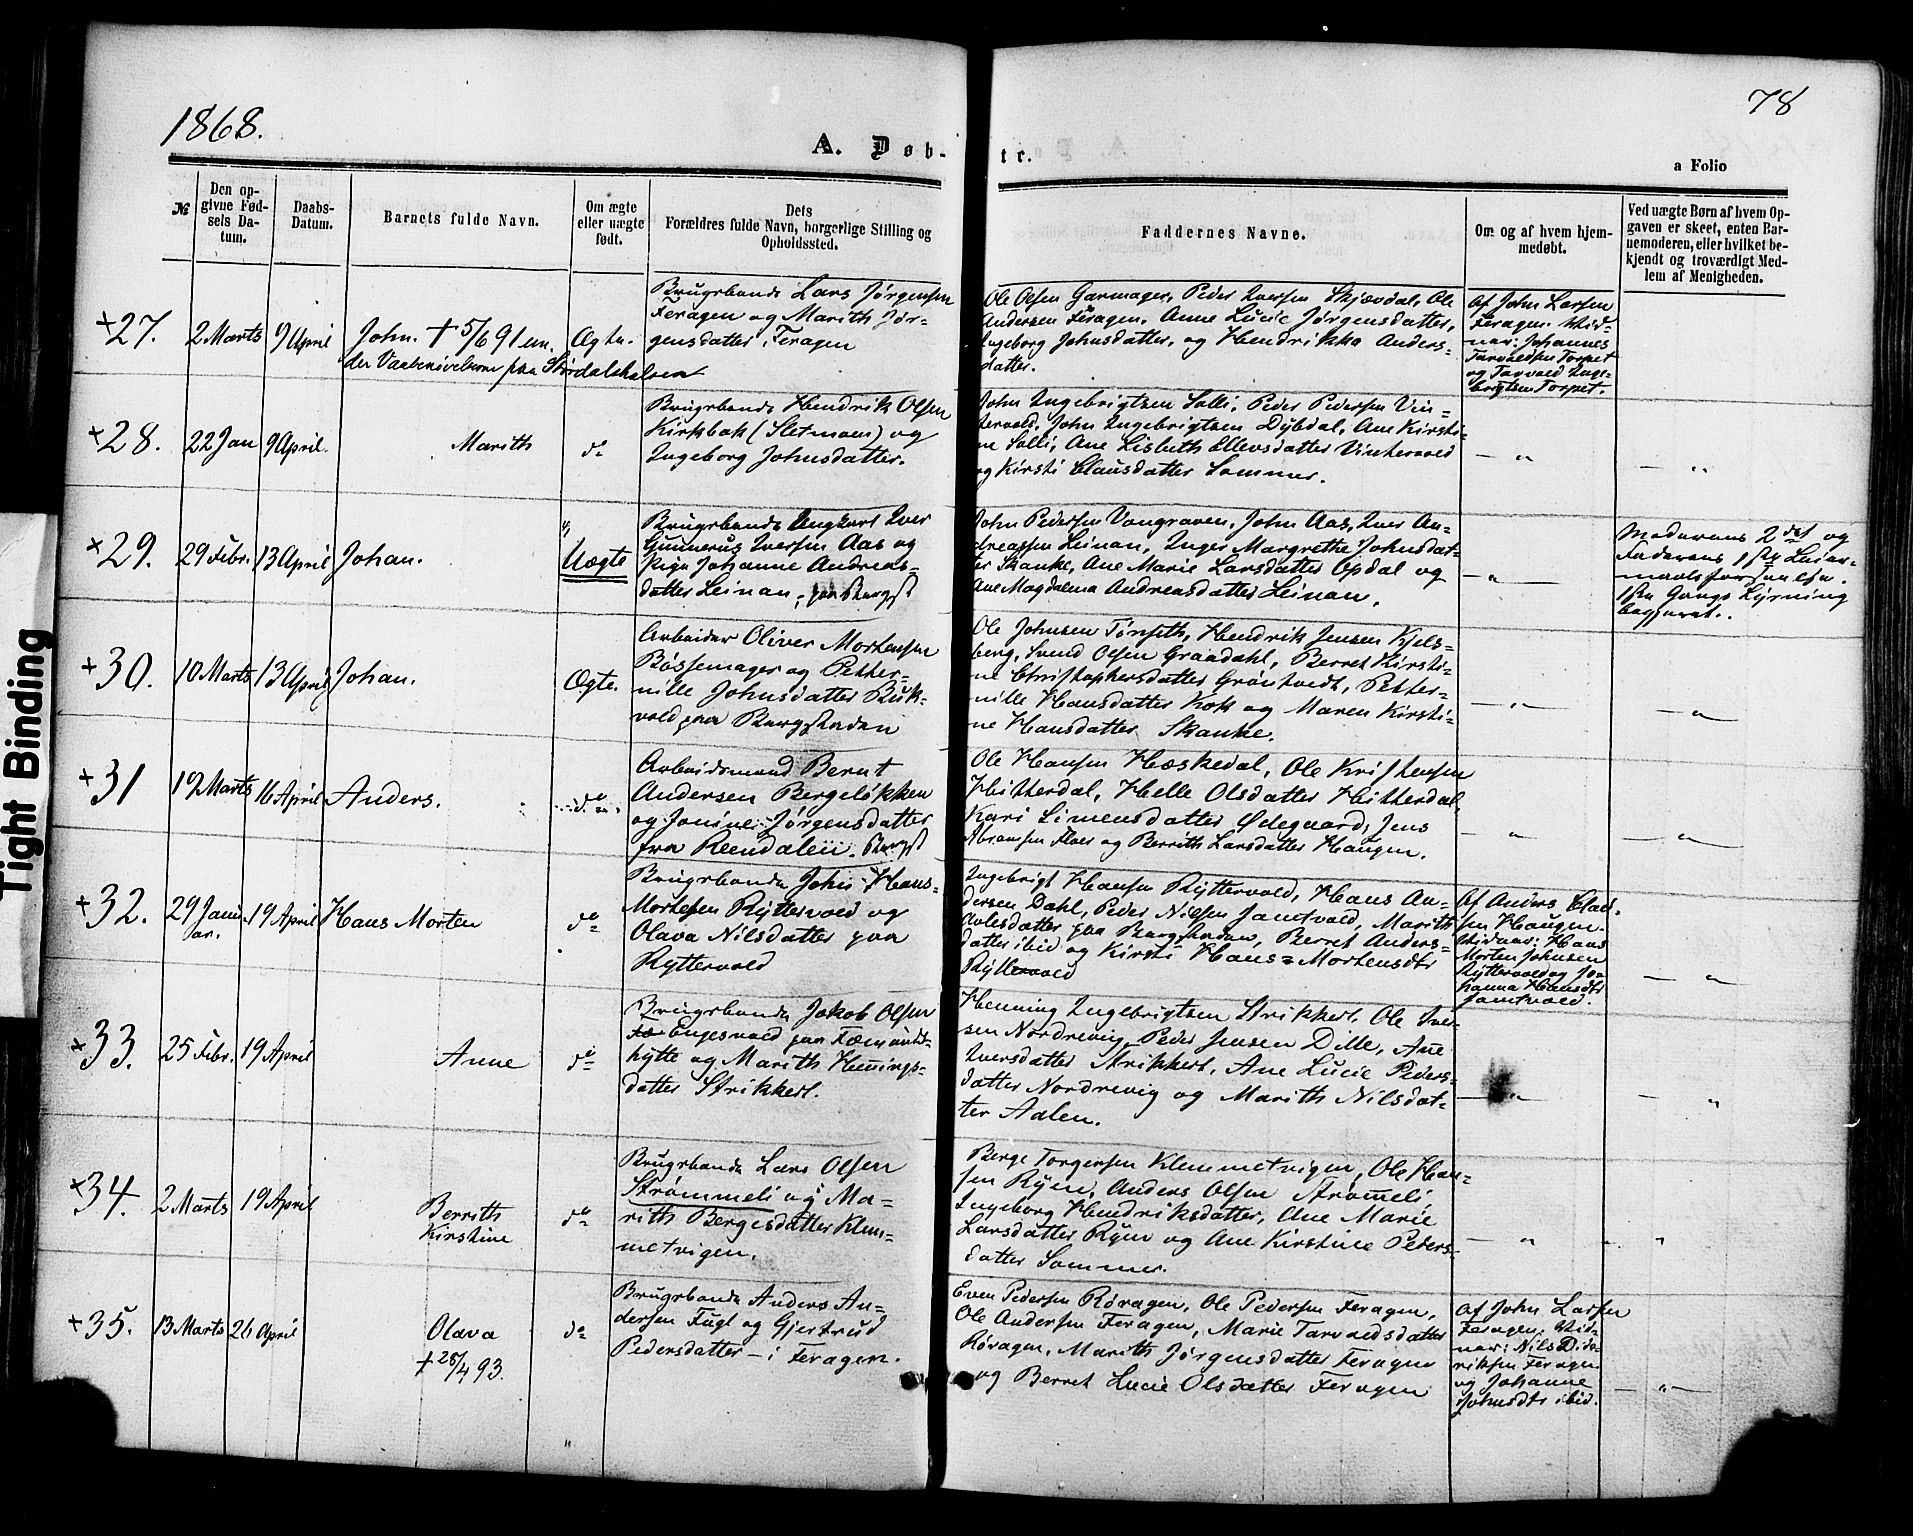 1868.
78
A. Døb-
te.
a Folio
№
Den op-
givne Fød-
sels Da-
tum.
Daabs-
Datum.
Barnets fulde Navn.
Om ægte
eller uægte
født.
Dets
Forældres fulde Navn, borgerlige Stilling og
Opholdssted.
Faddernes Navne.
Om og af hvem hjem-
medøbt.
Ved uægte Børn af hvem Op-
gaven er skeet, enten Bar-
nemoderen, eller hvilket be-
kjendt og troværdigt Med-
lem af Menigheden.
+27. 2 Marts 9 April John. + 5/6 91 un-
der Vaabenøvelserne paa Størdalshalsen
Ægte.
Brugsbonde Lars Jørgensen
Feragen og Marith Jør-
gensdatter, Feragen
Ole Olsen Garmager, Peder Iversen Skjævdal, Ole
Andersen Feragen, Anne Lucie Jørgensdatter,
Ingeborg Johnsdatter, og Hendrikka Anders-
datter.
Af John Larsen
Feragen. Vid-
ner: Johannes
Tarvaldsen Torpet
og Tarvald Inge-
brigtsen Torpet.
+28. 22 Jan 9 April. Marith do
Brugsbonde Hendrik Olsen
Kirkbak (Sletmoen) og
Ingeborg Johnsdatter.
John Ingebrigtsen Solli, Peder Pedersen Vin-
tervold, John Ingebrigtsen Dybdal, Ane Kirsti-
ne Solli, Ane Lisbeth Ellevsdatter Vintervold
og Kirsti Clausdatter Sommer.
— " —
— "
+29. 29 Febr. 13 April Johan.
Uægte
Brugsbonde Ungkarl Iver
Gunnerus Iversen Aas og
Pige Johanne Andreas-
datter Leinan, paa Bergst
John Pedersen Vongraven, John Aas, Iver An-
dreassen Leinan, Inger Margrethe Johnsdat-
ter Skanke, Ane Marie Larsdatter Opdal og
Ane Magdalena Andreasdatter Leinan.
— " —
Moderens 2det og
Faderens 1ste Leier-
maalsforseelse.
1ste Gangs Lysning
begjæret.
+30. 10 Marts 13 April Johan. Ægte.
Arbeider Oliver Mortensen
Bøssemager og Petter-
nille Johnsdatter Buk-
vold paa Bergstaden
Ole Johnsen Tønseth, Hendrik Jensen Kjels-
berg, Svend Olsen Graadahl, Berret Kirsti-
ne Christophersdatter Grøntvedt, Petter-
nille Hansdatter Kok og Maren Kirsti-
ne Hansdatter Skanke.
— " —
— " —
+31 19 Marts 16 April Anders. do
Arbeidsmand Bernt
Andersen Bergeløkken
og Jonine Jørgensdatter
fra Reendalen. Bergst
Ole Hansen Hæskedal, Ole Kristensen
Hitterdal, Helle Olsdatter Hitterdal,
Kari Simensdatter Ødegaard, Jens
Abramsen Floer og Berrith Larsdatter Haugen.
— " —
— " —
+32. 29 Janu-
ar. 19 April Hans Morten do
Brugsbonde John Hans-
Mortesen Ryttervold og
Olava Nilsdatter paa
Ryttervold
Ingebrigt Hansen Ryttervold, Hans An-
dersen Dahl, Peder Nilsen Jamtvold, Marith
Avlesdatter paa Bergstaden, Berret Anders-
datter ibid og Kirsti Hans=Mortensdtr
Ryttervold
Af Anders Clau-
sen Haugen.
Vidner: Hans
Morten Johnsen
Ryttervold og Jo-
hanna Hansdtr
Jamtvold.
— " —
+33. 25 Febr. 19 April Anne do
Brugsbonde Jakob Olsen
Engesvold paa Fæmunds-
hytte og Marith Hennings-
datter Strikkert.
Henning Ingebrigtsen Strikkert, Ole Iver-
sen Nordrevig, Peder Jensen Dille, Ane
Iversdatter Strikkert, Ane Lucie Peders-
datter Nordrevig og Marith Nilsdat-
ter Aalen.
— " —
— "
+34. 2 Marts 19 April Berrith
Kirstine do
Brugsbonde Lars Olsen
Strømmeli og Ma-
rith Bergesdatter Klem-
metvigen.
Berge Torgersen Klemmetvigen, Ole Han-
sen Ryen, Anders Olsen Strømeli,
Ingeborg Hendriksdatter, Ane Marie
Larsdatter Ryen og Ane Kirstine Peders-
datter Sommer.
— " —
"
+35. 13 Marts 26 April Olava
+ 28/4 93. do
Brugsbonde Anders An-
dersen Fugl og Gjertrud
Pedersdatter — i Feragen.
Even Pedersen Røragen, Ole Pedersen Feragen,
Ole Andersen Feragen, Marie Tarvaldsdatter
Røragen, Marith Jørgensdatter Feragen
og Berret Lucie Olsdatter Feragen
Af John Larsen
Feragen. Vid-
ner: Nils Dide-
riksen Feragen
og Johanne
Johnsdtr ibid.
— " —
Tight Binding